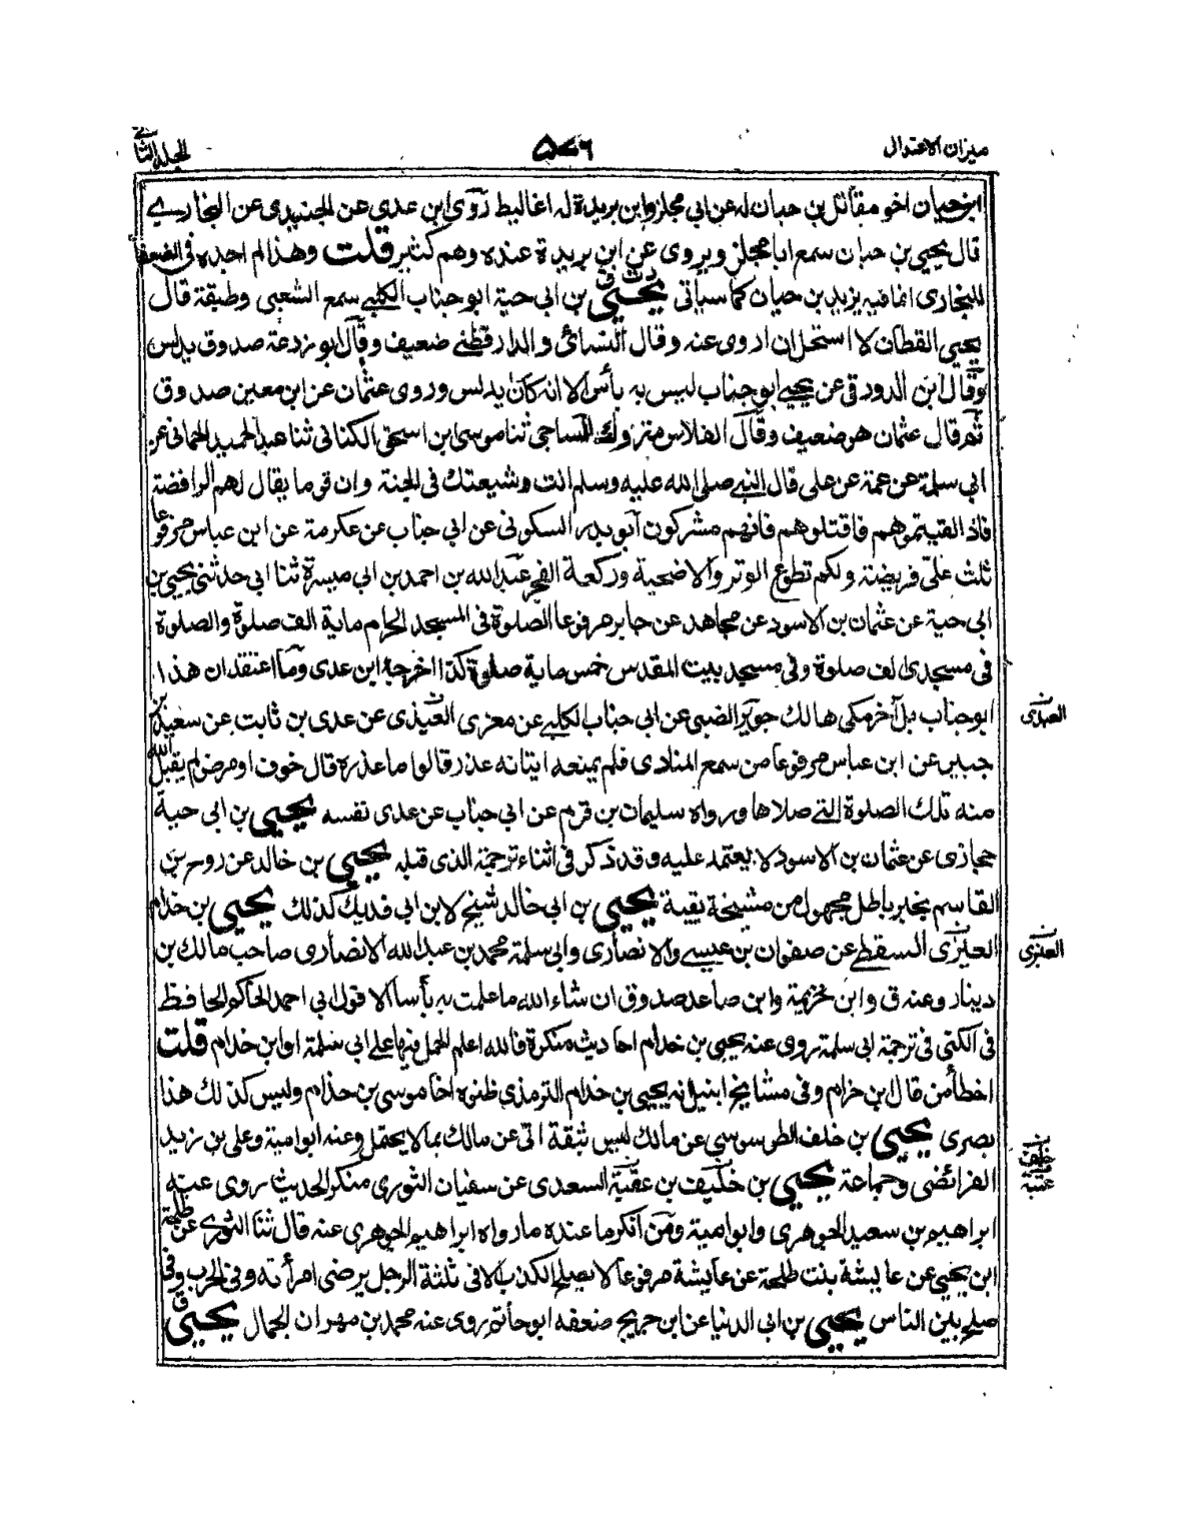 ميزان الاعتدال
۵۷۶
المجلد الثاني
ابن حيان اخو مقاتل بن حيان له عن ابي مجلز وابن بريدة له اغاليط روى ابن عدى عن الجنيدى عن البخارى
قال يحيى بن حيان سمع ابا مجلز ويروى عن ابن بريدة عنده وهم كثير قلت وهذا لم اجده فى الضعفا
للبخارى انما فيه يزيد بن حيان كما سياتى يحيى بن ابى حية ابو جناب الكلبى سمع الشعبى وطبقته قال
يحيى القطان لا استحل ان اروى عنه وقال النسائى والدارقطنى ضعيف وقال ابو زرعة صدوق يدلس
وقال ابن الدورقى عن يحيى ابو جناب ليس به بأس الا انه كان يدلس وروى عثمان عن ابن معين صدوق
ثم قال عثمان هو ضعيف وقال الفلاس متروك الساجى ثنا موسى بن اسحق الكنانى ثنا عبد الحميد الحمانى عن
ابى سلمة عن عمة عن على قال النبى صلى الله عليه وسلم انت وشيعتك فى الجنة وان قوما يقال لهم الرافضة
فاذا لقيتموهم فاقتلوهم فانهم مشركون ابو بدر السكونى عن ابى جناب عن عكرمة عن ابن عباس مرفوعا
ثلث على فريضة ولكم تطوع الوتر والاضحية وركعة الفجر عبد الله بن احمد بن ابى ميسرة ثنا ابى حدثنى يحيى بن
ابى حية عن عثمان بن الاسود عن مجاهد عن جابر مرفوعا الصلوة فى المسجد الحرام ماية الف صلوة والصلوة
فى مسجدى الف صلوة وفى مسجد بيت المقدس خمس ماية صلوة كذا اخرجه ابن عدى وما اعتقد ان هذا
ابو جناب بل آخر مكى هالك جرير الضبى عن ابى جناب الكلبى عن مغرى العبدى عن عدى بن ثابت عن سعيد بن
جبير عن ابن عباس مرفوعا من سمع المنادى فلم يمنعه اتيانه عذر قالوا ما عذره قال خوف او مرض لم يقبل الله
منه تلك الصلوة التى صلاها ورواه سليمان بن قرم عن ابى جناب عن عدى نفسه يحيى بن ابى حية
حجازى عن عثمان بن الاسود لا يعتمد عليه وقد ذكر فى اثناء ترجمة الذى قبله يحيى بن خالد عن روح بن
القاسم بخبر باطل مجهول من مشيخة بقية يحيى بن ابى خالد شيخ لابن ابى فديك كذلك يحيى بن خذام
العنبرى السقطى عن صفوان بن عيسى والانصارى وابى سلمة محمد بن عبد الله الانصارى صاحب مالك بن
دينار وعنه ق وابن خزيمة وابن صاعد صدوق ان شاء الله ما علمت به بأسا الا قول ابى احمد الحاكم الحافظ
فى الكنى فى ترجمة ابى سلمة روى عنه يحيى بن خذام احاديث منكرة فالله اعلم الحمل فيها على ابى سلمة او ابن خذام قلت
اخطأ من قال ابن خزام وفى مشايخ يحيى بن خذام الترمذى ظنوه اخا موسى بن خذام وليس كذلك هذا
بصرى يحيى بن خلف الطرسوسى عن مالك ليس بثقة اتى عن مالك بما لا يحتمل وعنه ابو امية وعلى بن زيد
الفرائضى وجماعة يحيى بن خليف بن عقبة السعدى عن سفيان الثورى منكر الحديث روى عنه
ابراهيم بن سعيد الجوهرى وابو امية ومن انكر ما عنده ما رواه ابراهيم الجوهرى عنه قال ثنا الثورى عن طلحة
ابن يحيى عن عايشة بنت طلحة عن عايشة مرفوعا لا يصلح الكذب الا فى ثلثة الرجل يرضى امرأته وفى الحرب وفى
صلح بين الناس يحيى بن ابى الدنيا عن ابن جريج ضعفه ابو حاتم روى عنه محمد بن مهران الجمال يحيى
العبدى
العنبرى
خليف
عتبة